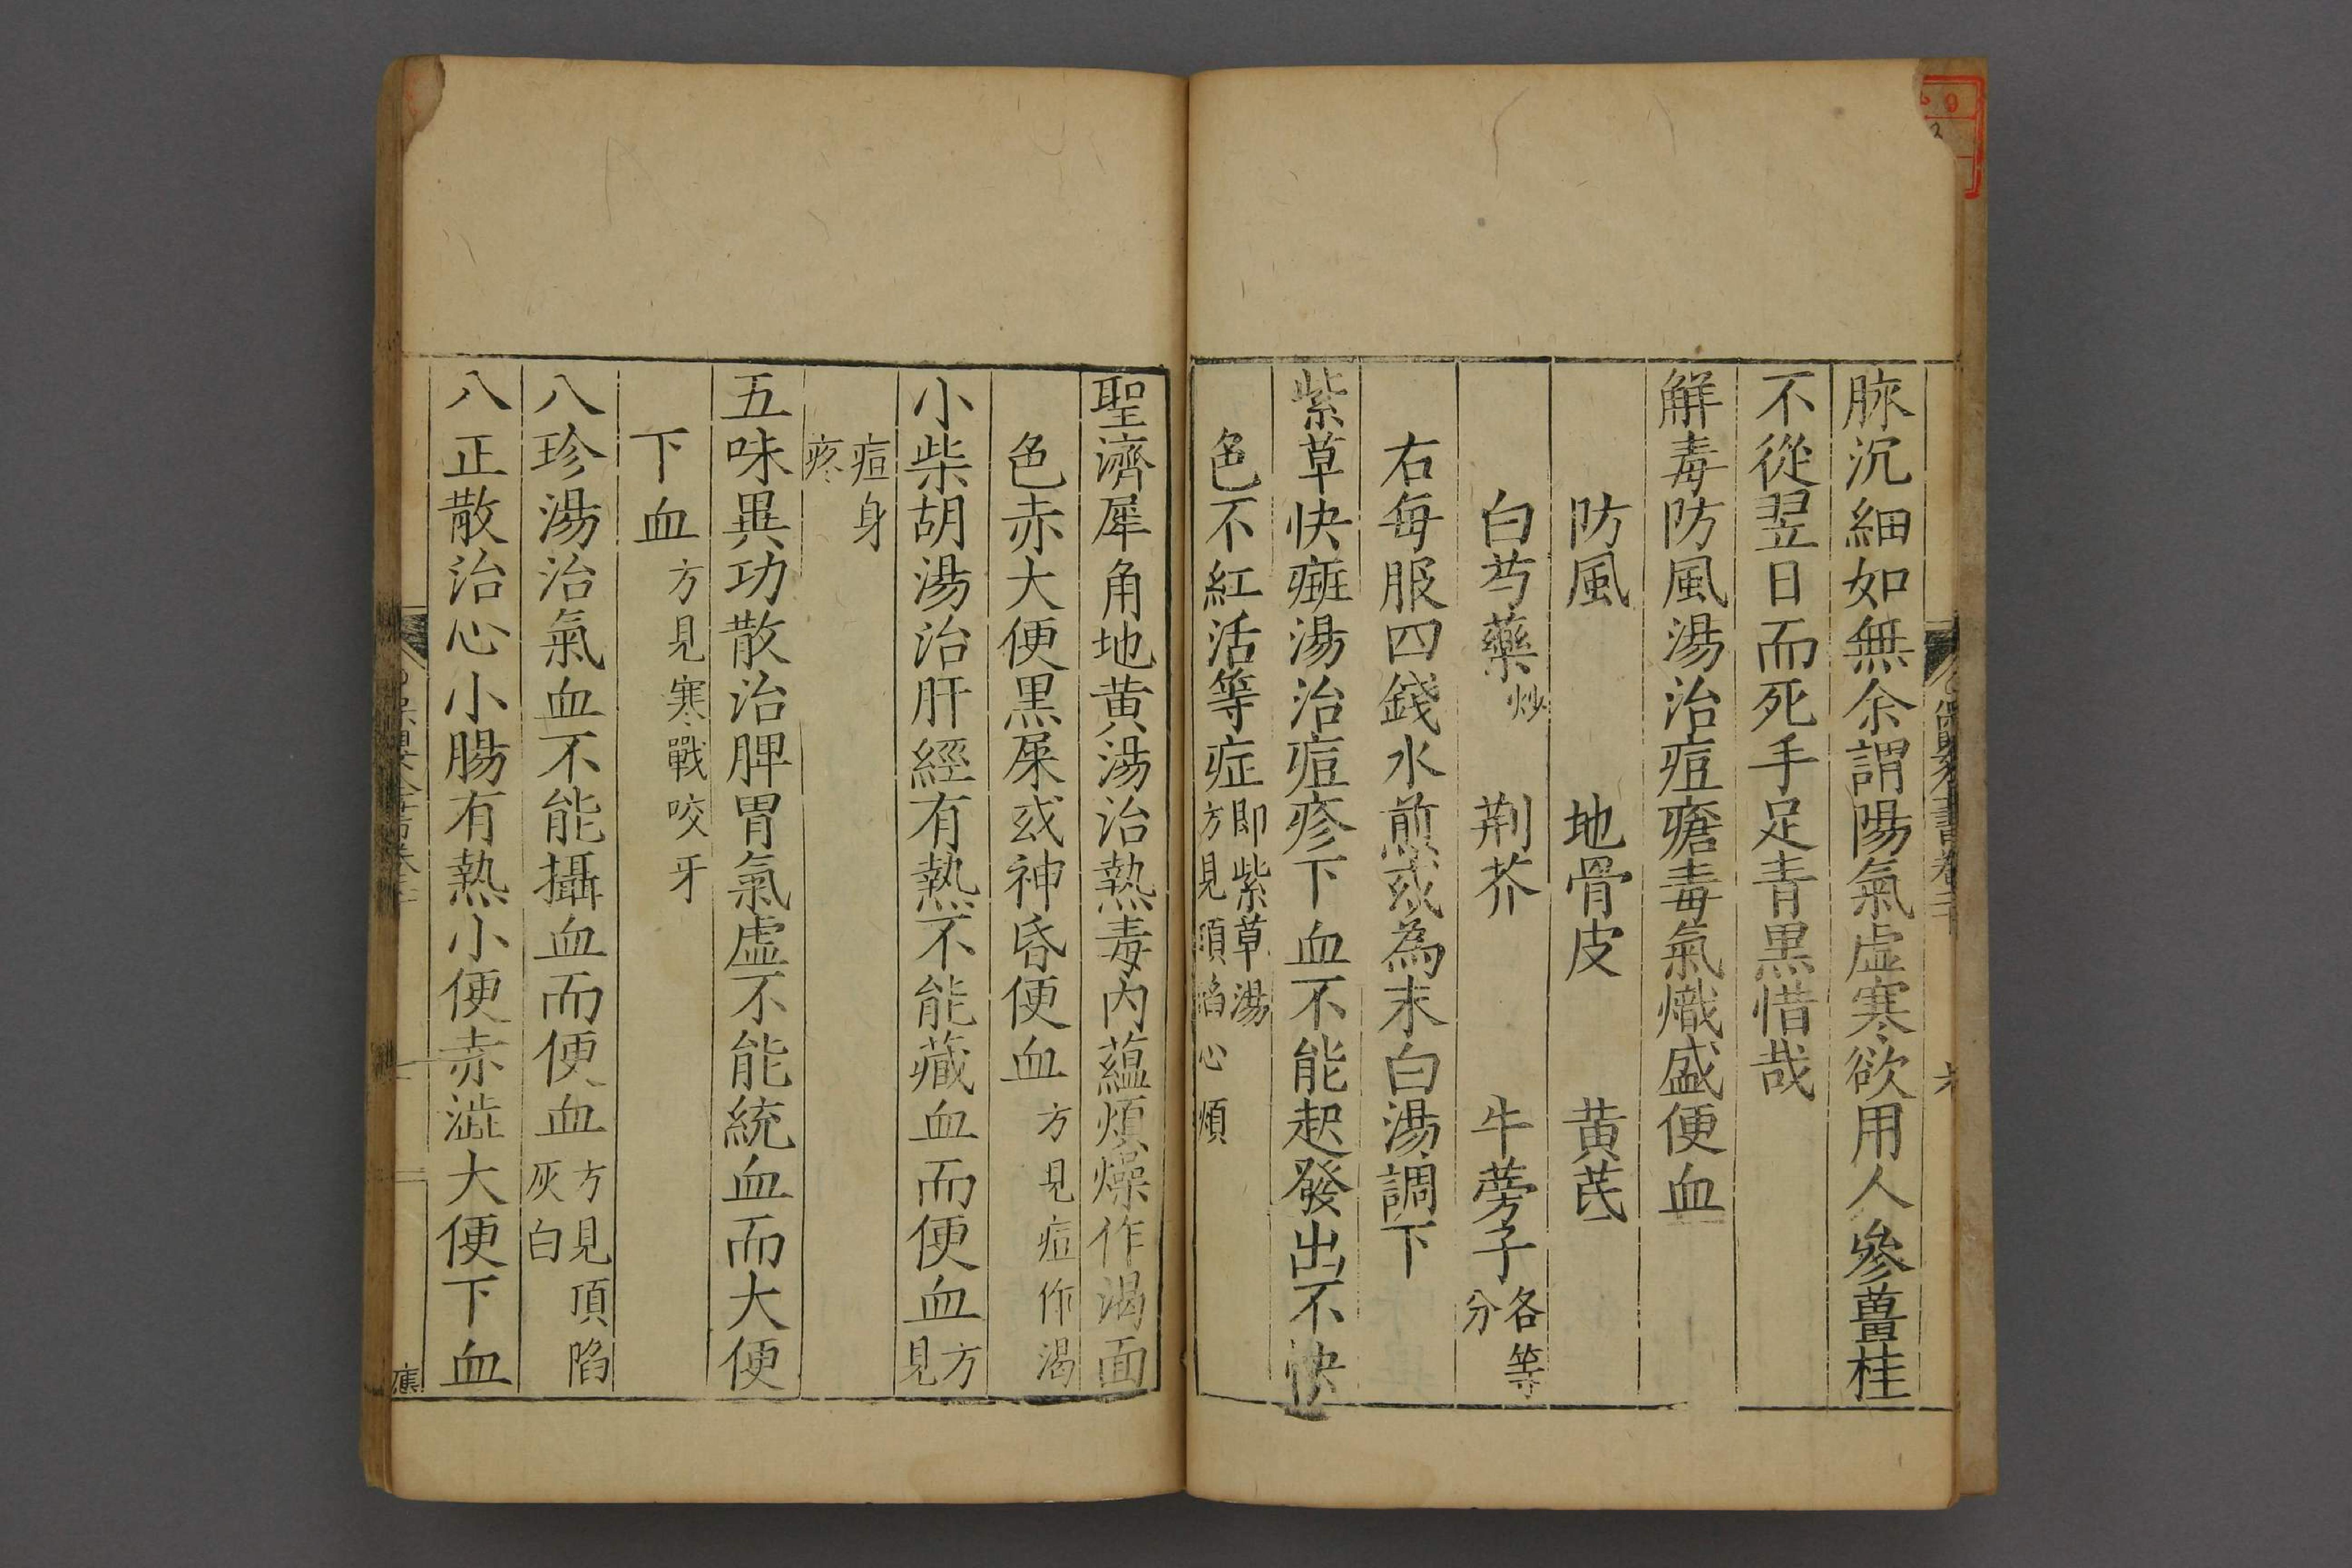 脉沉細如無余謂陽氣虛寒欲用人參薑桂
不從翌日而死手足青黑惜哉
解毒防風湯治痘瘡毒氣熾盛便血
防風　地骨皮　黃芪
白芍藥炒　荆芥　牛蒡子各等分
右每服四錢水煎或為末白湯調下
紫草快癍湯治痘疹下血不能起發出不快
色不紅活等症即紫草湯方見頂陷心煩
聖濟犀角地黃湯治熱毒內蘊煩燥作渴面
色赤大便黑屎或神昏便血方見痘作渴
小柴胡湯治肝經有熱不能藏血而便血方見
痘身疼
五味異功散治脾胃氣虛不能統血而大便
下血方見寒戰咬牙
八珍湯治氣血不能攝血而便血方見頂陷灰白
八正散治心小腸有熱小便赤澁大便下血